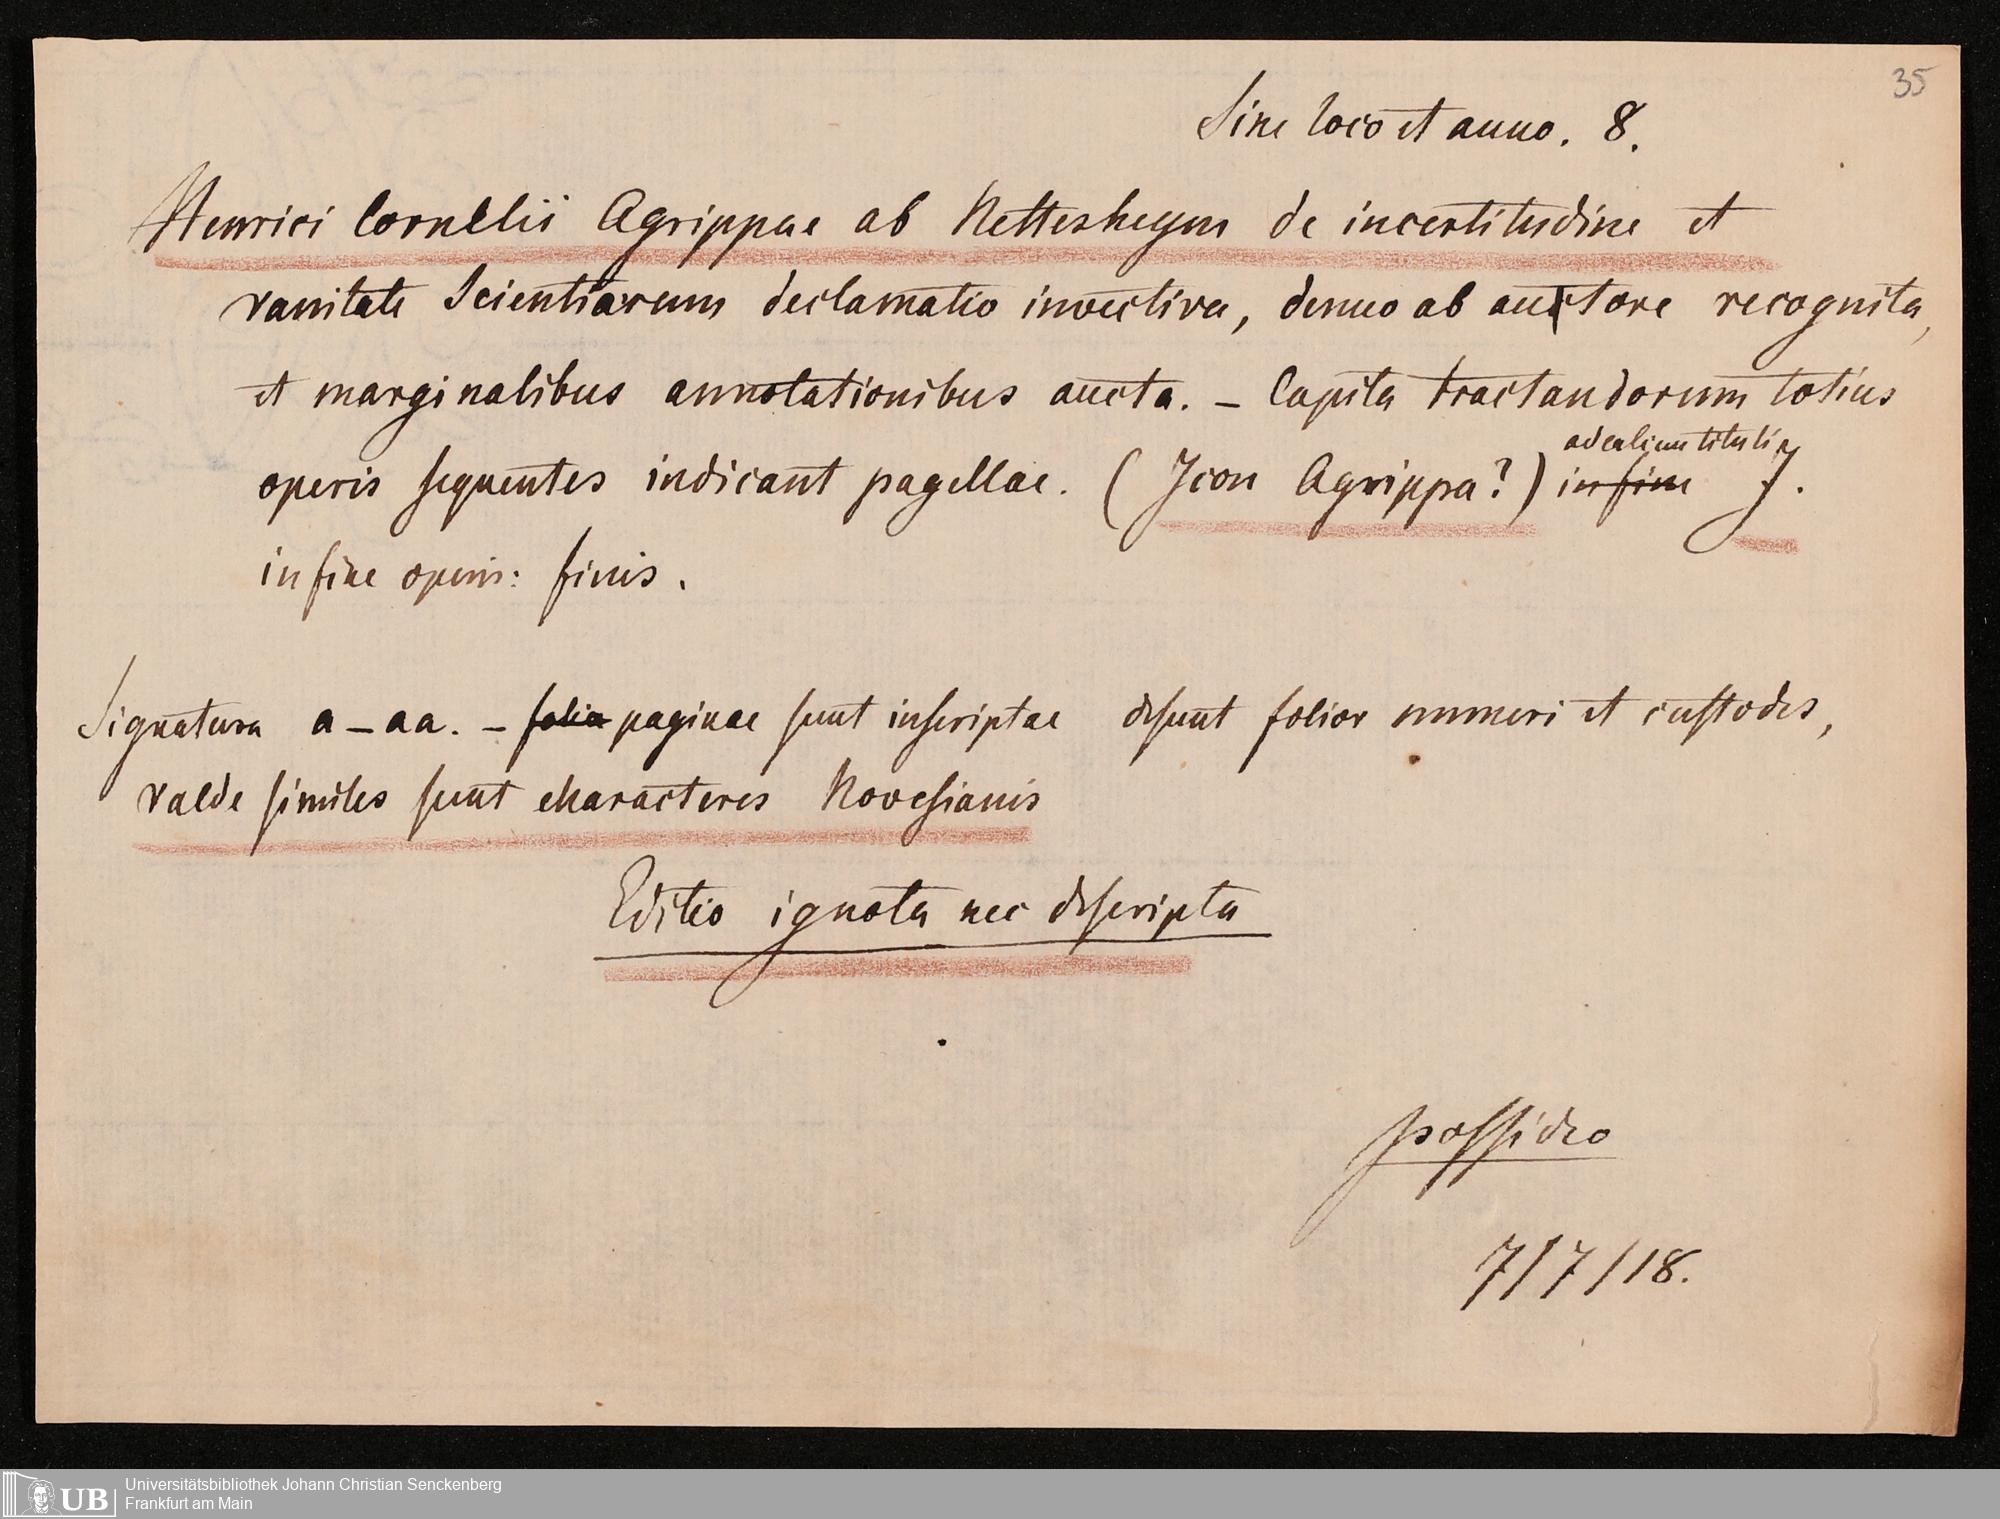 35
Sine loco et anno. 8.
Henrici Cornelii Agrippae ab Nettesheym de incertitudine et
vanitate Scientiarum declamatio invectiva, denuo ab auctore recognita,
et marginalibus annotationibus aucta. – Capita tractandorum totius
ad calicem tituli
operis sequentes indicant pagellae. (Icon Agrippa?) in fine
in fine operis: finis.
Signatura a – aa. – folia paginae sunt inscriptae desunt folior numeri et custodes,
valde similes sunt characteres Novesianis
Editio ignota nec descripta
possideo
7/7/18.
UB
Universitätsbibliothek Johann Christian Senckenberg
Frankfurt am Main